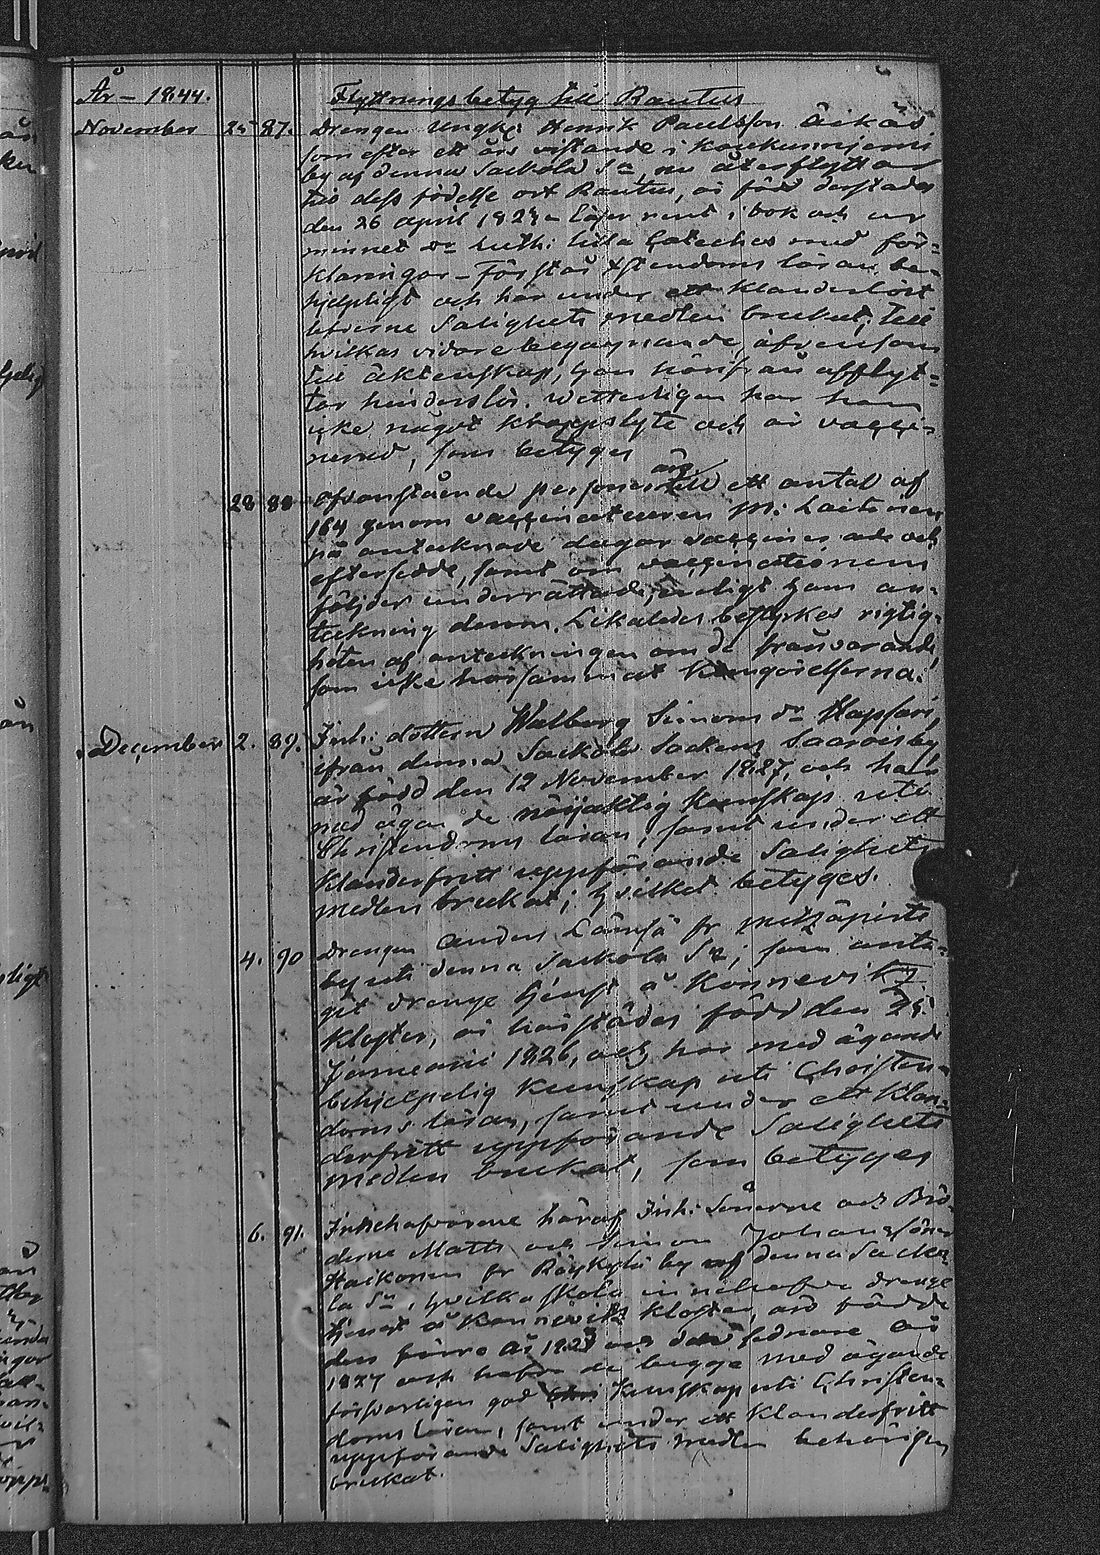 År – 1844.
Flyttningsbetyg till Rautus
November 25 87. Drengen Ungk: Henrik Paulsson Ääkäs
som efter ett års vistande i
by af denna Sackola Sn, nu återflyttar
till dess födelse ort Rautus, är född derstädes
den 26 april 1823 läser rent i bok och ur
minnet Dr Luth: lilla Cateches med för-
klaringar – Förstår Xstendoms läran be-
hjelpligt och har under ett klanderlöst
lefverne Salighets medlen brukat, till
hvilkas vidare begagnande, äfvensom
till äktenskap, han härifrån afflyt-
tar hinderslös. Wetterligen har han
icke något kroppslyte och är vaccei-
nerad, som betyges
28 88 Ofvanstående personer till ett antal af
164 genom vaccinateuren M. Laitinen
på antecknade dagar vaccinerade och
eftersedde, samt om vaccinationens
följder underrättade, enligt hans an-
teckning derom. Likaledes bestyrkes rigtig-
heten af anteckningen om de frånvarande,
som icke hörsammat kungörelserna.
December 2. 89. Inh: dottern Walborg Simons dr Hapsari,
ifrån denna Sackola Sockens Saarois by
är född den 12 November 1827, och har
med ägande nöjaktig kunskap uti
Christendoms läran, samt under ett
klanderfritt uppförande Salighets
medlen brukat; hvilket betyges.
4. 90 Drengen Anders Lämsä fr Metzäpirtti
by uti denna Sackola Sn, som anta-
git drenge tjenst å Konnevitz
kloster, är härstädes född den 25
Januarii 1826, och har med ägande
behjelpelig kunskap uti Christen-
doms läran, samt under ett klan-
derfritt uppförande Salighets
medlen brukat, som betyges
6. 91. Innehafvarene häraf Inh: Sönerne och Brö-
derne Matts och Simon Johans söner
Haikonen fr Röykylä by af denna Sacko-
la Sn, hvilka skola innehafva drenge
tjenst å Konnevitz kloster, äro födde
den förre år 1823 och den sednare år
1827 och hafva de begge med ägande
försvarligen god kunskap uti Christen-
doms läran, samt under ett klanderfritt
uppförande Salighets medlen behörigen
brukat.